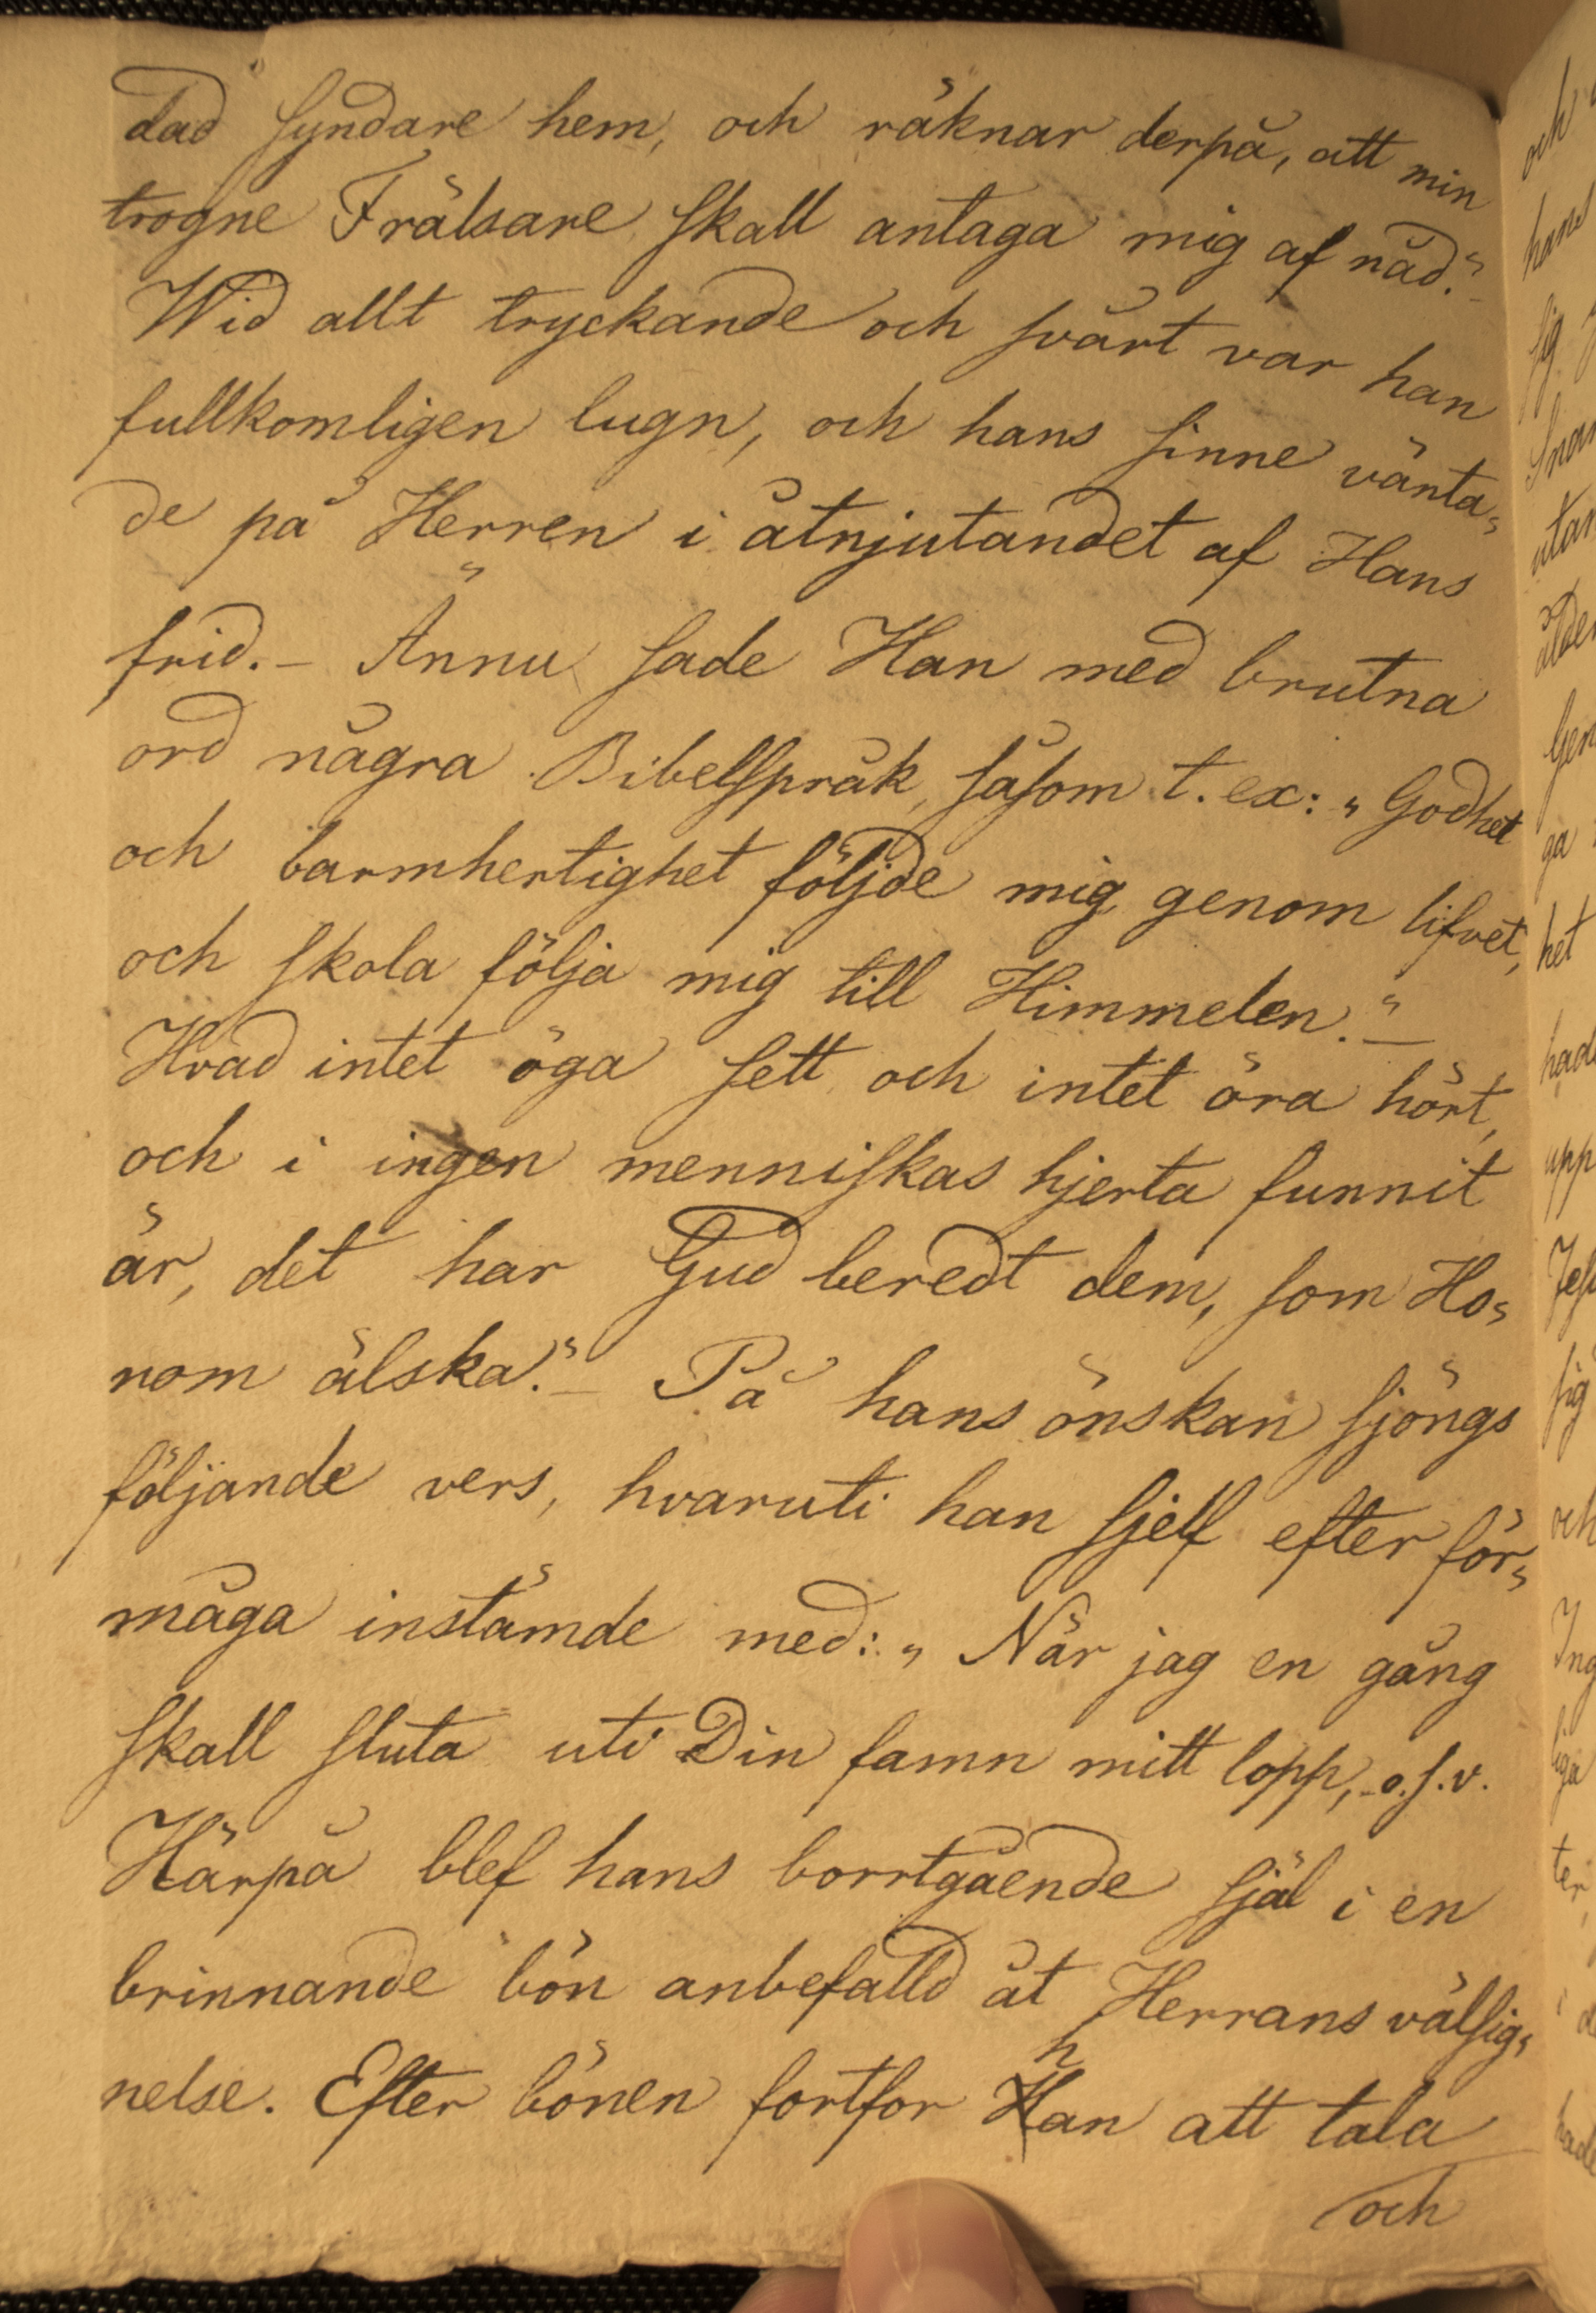 dad syndare hem, och räknar derpå, att min
trogne Frälsare skall antaga mig af nåd."–
Wid allt tryckande och svårt var han
fullkomligen lugn, och hans sinne vänta-
de på Herren i åtnjutandet af Hans
frid. – Ännu sade Han med brutna
ord några Bibelspråk, såsom t. ex: „Godhet
och barmhertighet följde mig genom lifvet,
och skola följa mig till Himmelen."–
Hvad intet öga sett och intet öra hört,
och i ingen menniskas hjerta funnit
är, det har Gud beredt dem, som Ho-
nom älska."– På hans önskan sjöngs
följande vers, hvaruti han sjelf efter för-
måga instämde med: „När jag en gång
skall sluta uti Din famn mitt lopp, o.s.v.
Härpå blef hans borrtgående själ i en
brinnande bön anbefalld åt Herrans välsig-
nelse. Efter bönen fortfor han att tala
och